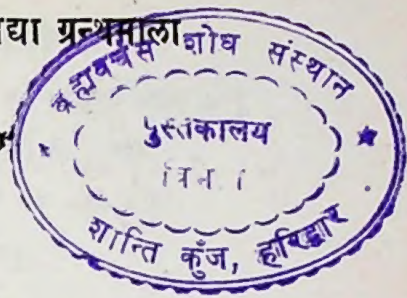 द्या ग्रन्थमाला
ब्रह्मवर्चस शोध संस्थान
पुस्तकालय
शान्ति कुँज, हरिद्वार